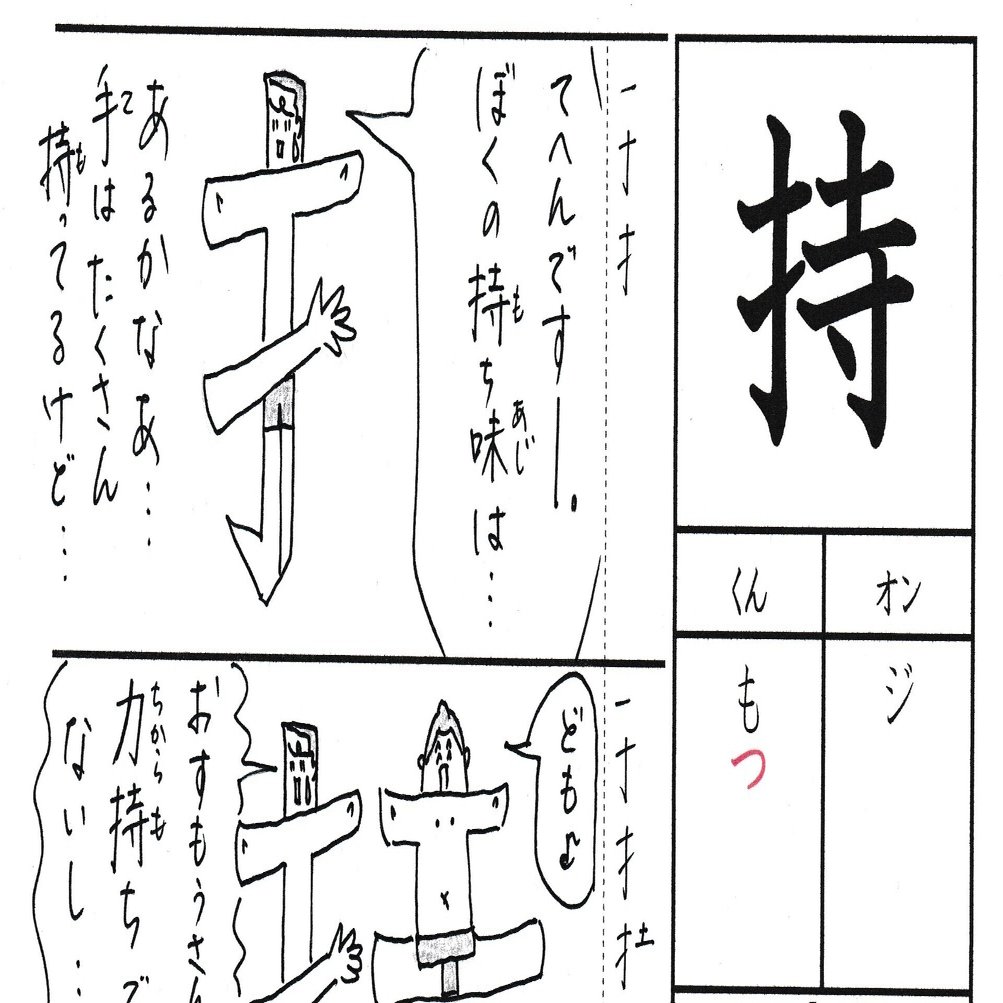 持
オン
くん
ジ
もつ
一 十 扌
てへんですー。
ぼくの持ち味は…
も
あじ
あるかなあ…
手はたくさん
て
持ってるけど…
も
ども♪
おすもうさん
力持ちで
ちから
も
ないし…